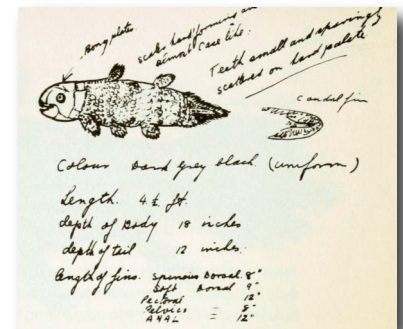 Bony plates
scales hard forming an
almost case like.
Teeth small and sparingly
scattered on hard palate
Caudal fin
Colour Dark grey black. (uniform)
Length. 4½ ft.
depth of Body 18 inches
depth of tail 12 inches.
length of fins. Spinous Dorsal. 8"
Soft Dorsal 9"
Pectoral 12"
Pelvics = 8"
ANAL = 12"